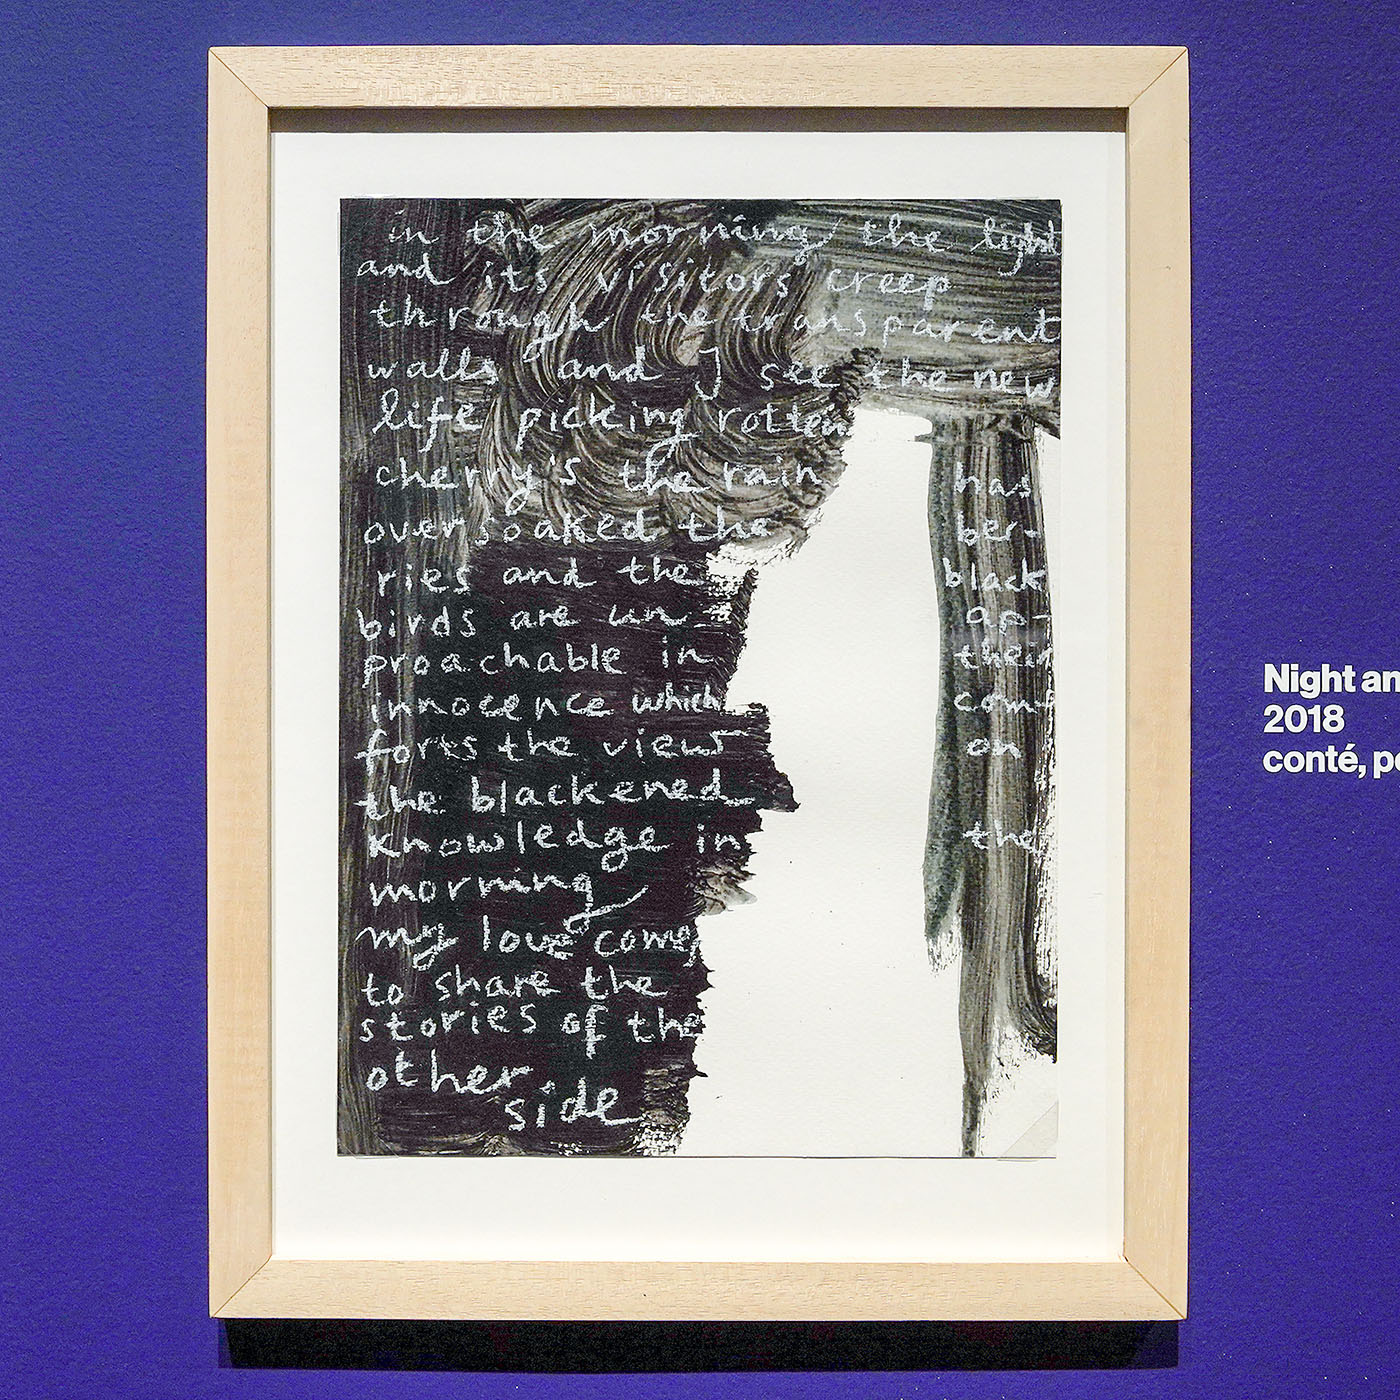 in the morning the light
and its visitors creep
through the transparent
walls and I see the new
life picking rotten
cherry's the rain has
oversoaked the ber-
ries and the black
birds are un ap-
proachable in their
innocence which com-
forts the view on
the blackened
knowledge in the
morning
my love comes
to share the
stories of the
other side
Night an
2018
conté, pe